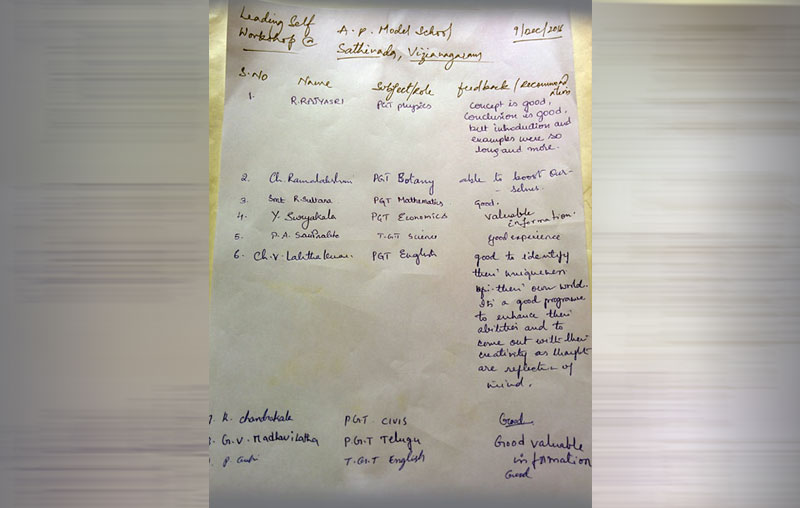 Leading Self
Workshop @ A.P. Model School 9/Dec/2016
Sathivada, Vizianagaram
S.No Name Subject/role feedback/recommend
ations
1. R. RAJYASRI PGT physics concept is good,
Conclusion is good,
but introduction and
examples were so
long and more.
2. Ch. Ramalakshmi PGT Botany able to boost our-
- selves.
3. Smt R. Sultana PGT Mathematics Good.
4. Y. Suryakala PGT Economics valuable
information.
5. P. A. T.G.T Science good experience
6. Ch. V. Lalitha kumari PGT English good to identify
their uniqueness
their own world.
It's a good programe
to enhance their
abilities and to
come out with their
creativity as thought
are reflection of
mind.
K. chandrakala PGT. CIVIS Good
G. V. Madhavilatha P.G.T Telugu Good valuable
information
P. T.G.T English Good